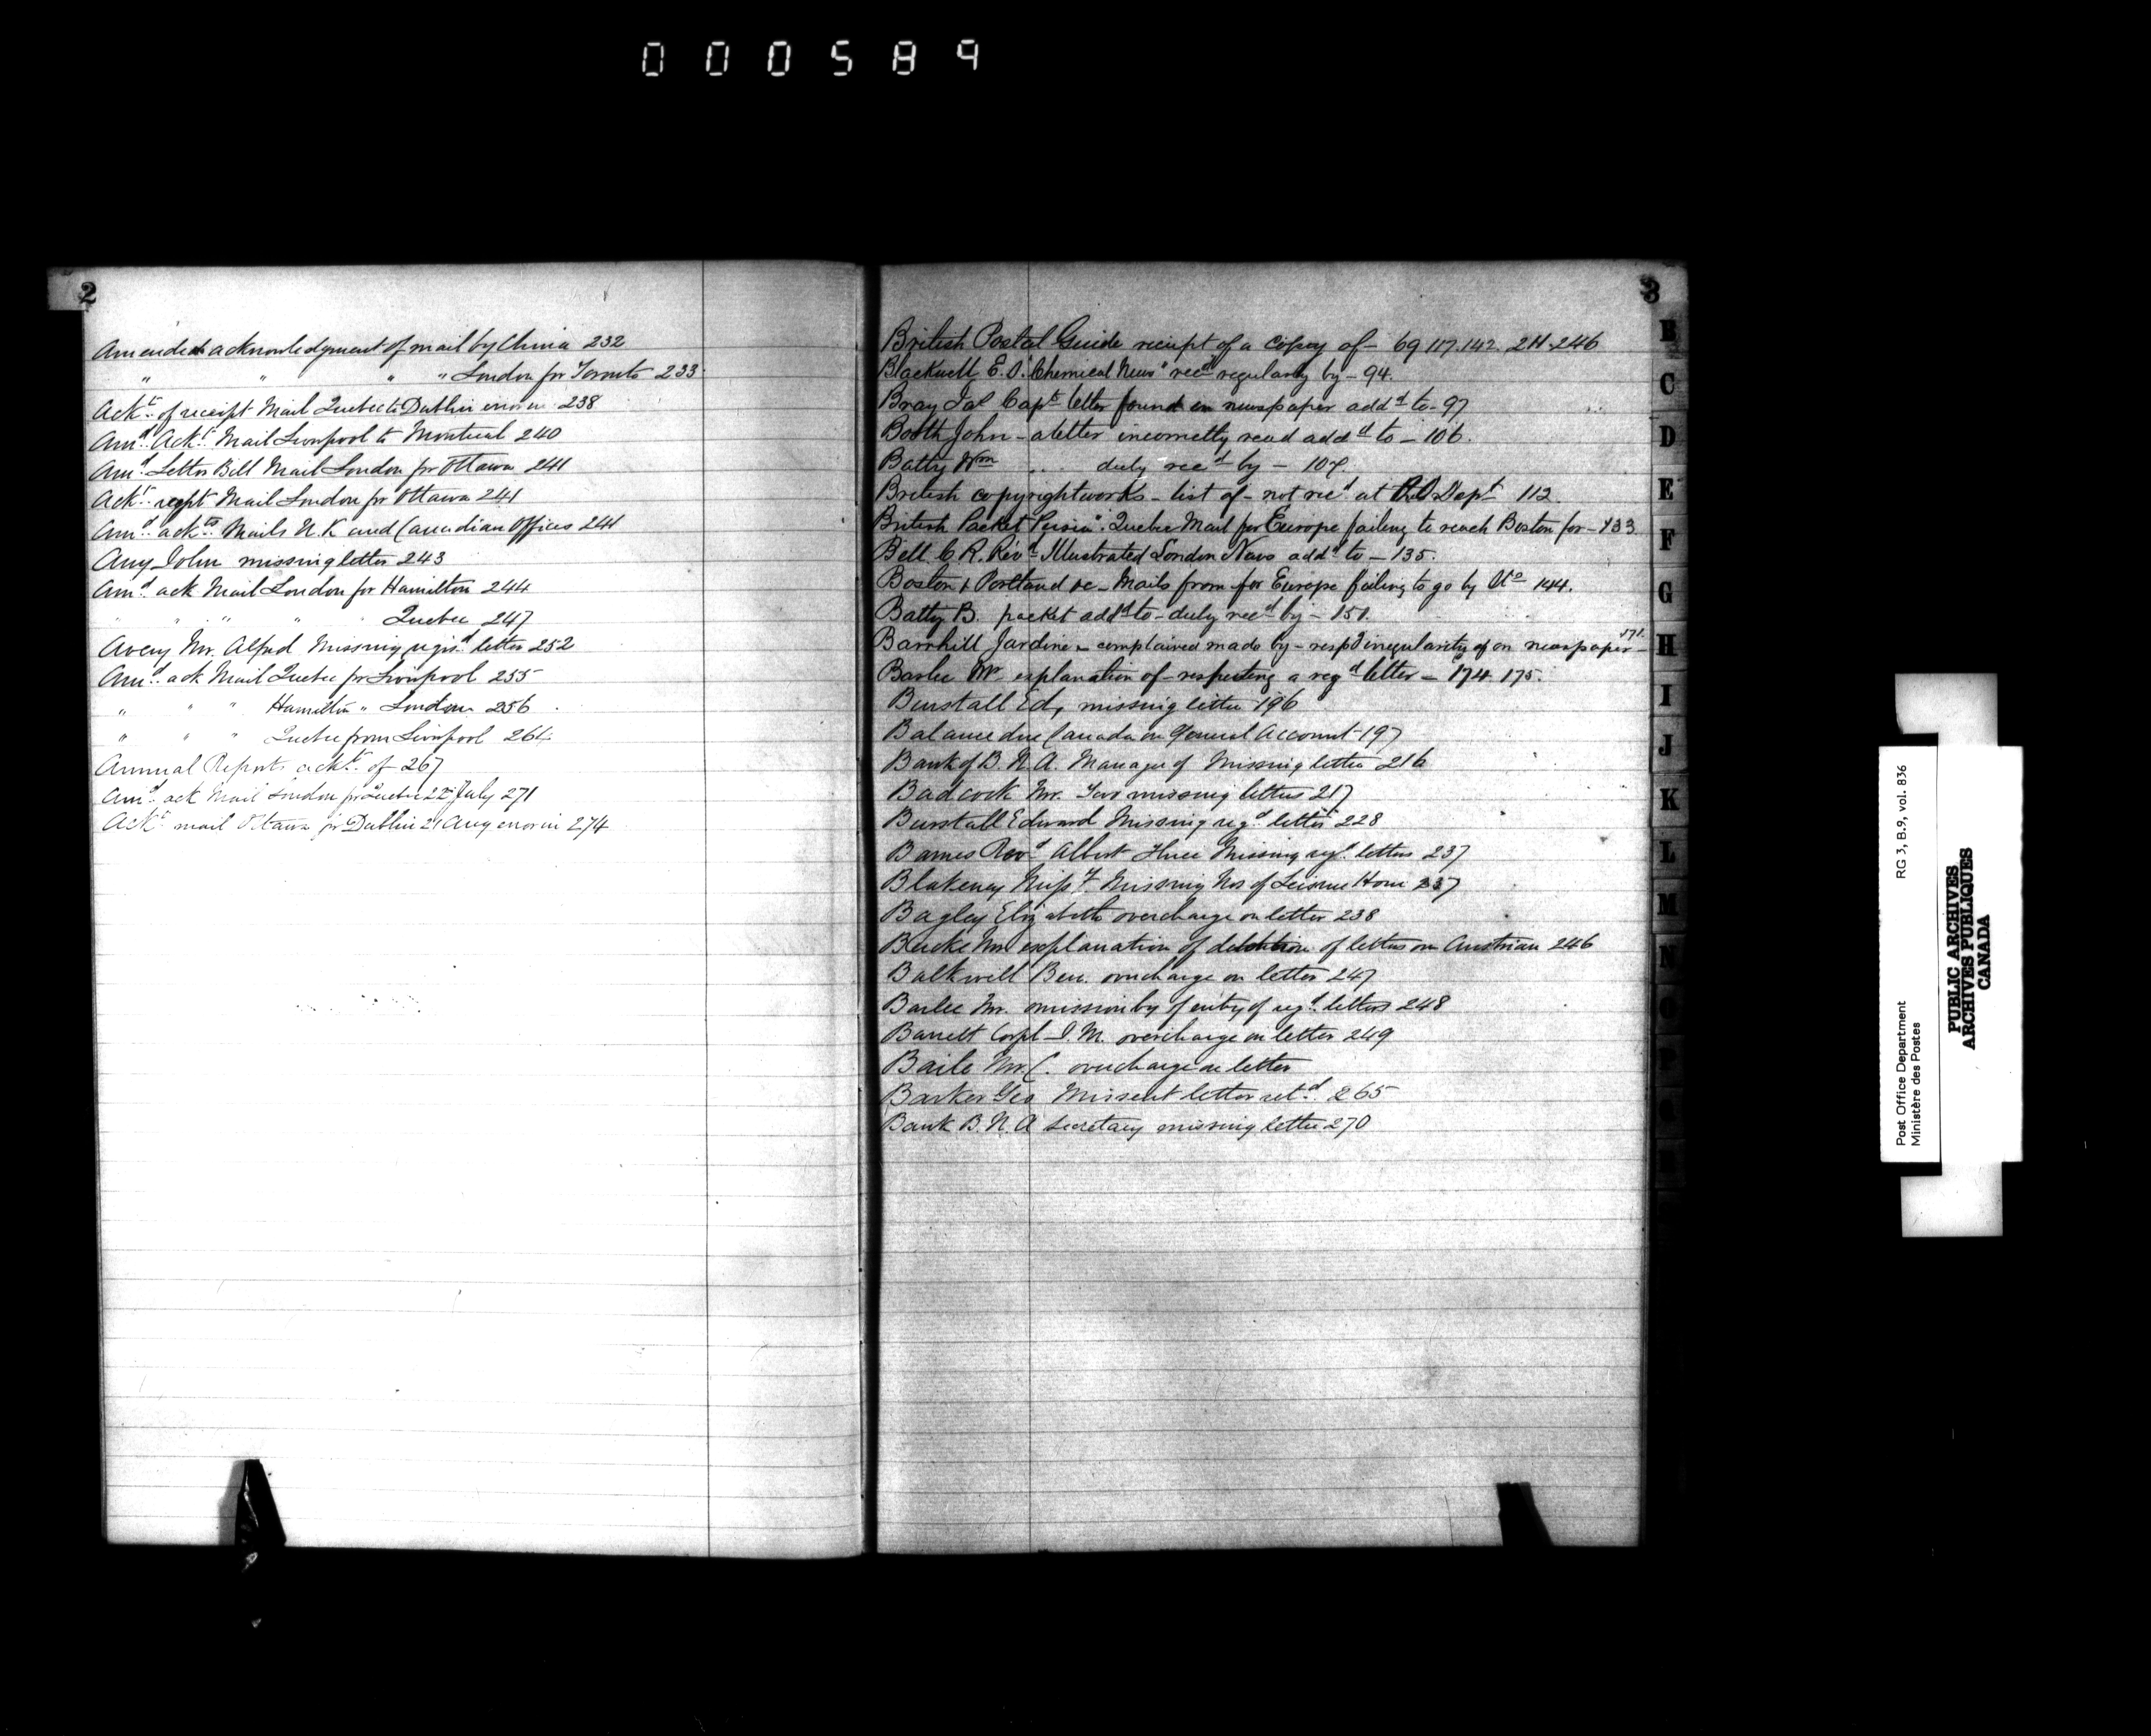 000589
2
Amended acknowledgment of mail by China 232
" " " " London for Toronto 233
Ackt. of receipt Mail Quebec to Dublin error in 238
Amd. Ackt. Mail Liverpool to Montreal 240
Amd. Letter Bill Mail London for Ottawa 241
Ackt. rcpt Mail London for Ottawa 241
Amd. ackts. Mails U.K and Canadian Offices 241
Amy John missing letter 243
Amd. ack Mail London for Hamilton 244
" " " " " Quebec 247
Avery Mr. Alfred Missing regisd. letter 252
Amd. ack Mail Quebec for Liverpool 255
" " " Hamilton " London 256
" " " Quebec from Liverpool 261
Annual Reports ackt. of 267
Amd. ack Mail London for Quebec 22d July 271
Ackt. mail Ottawa for Dublin 21 Aug error in 274
3
British Postal Guide receipt of a copy of - 69 117. 142. 211. 246
Blackwell E. S. "Chemical News" recd regularly by - 94.
Bray Jas Capt. letter found in newspaper addd to - 97
Booth John - a letter incorrectly read addd to - 106.
Batty Wm " " duly recd by - 107.
British copyright works - list of - not recd at P.O Dept 112.
British Packet "Persia". Quebec Mail for Europe failing to reach Boston for - 133
Bell C. R. Revd. Illustrated London News addd to - 135.
Boston & Portland &c - Mails from for Europe failing to go by Uo 144.
Batty B. packet addd to - duly recd by - 151.
Barnhill Jardine - complained made by - respd irregularity of on newspaper - 171.
Barlee Mr. explanation of - respecting a regd letter - 174. 175.
Burstall Ed, missing letter 196
Balance due Canada on General Account 197
Bank of B. N. A. Manager of Missing letter 216
Badcock Mr. Two missing letters 217
Burstall Edward Missing regd. letter 228
Barnes Revd. Albert three Missing regd. letters 237
Blakeney Miss F Missing Nos of Leisure Hour 237
Bagley Elizabeth overcharge on letter 238
Burke Mr explanation of detention of letters on Austrian 246
Balkwell Ben. overcharge on letter 247
Barlee Mr. omission by of entry of regd. letters 248
Barrett Corpl - J. M. overcharge on letter 249
Baile Mr. C. overcharge on letter
Barker Geo Missent letter retd. 265
Bank B. N. A Secretary missing letter 270
B
C
D
E
F
G
H
I
J
K
L
M
N
O
Post Office Department
Ministère des Postes
RG 3, B.9, vol. 836
PUBLIC ARCHIVES
ARCHIVES PUBLIQUES
CANADA